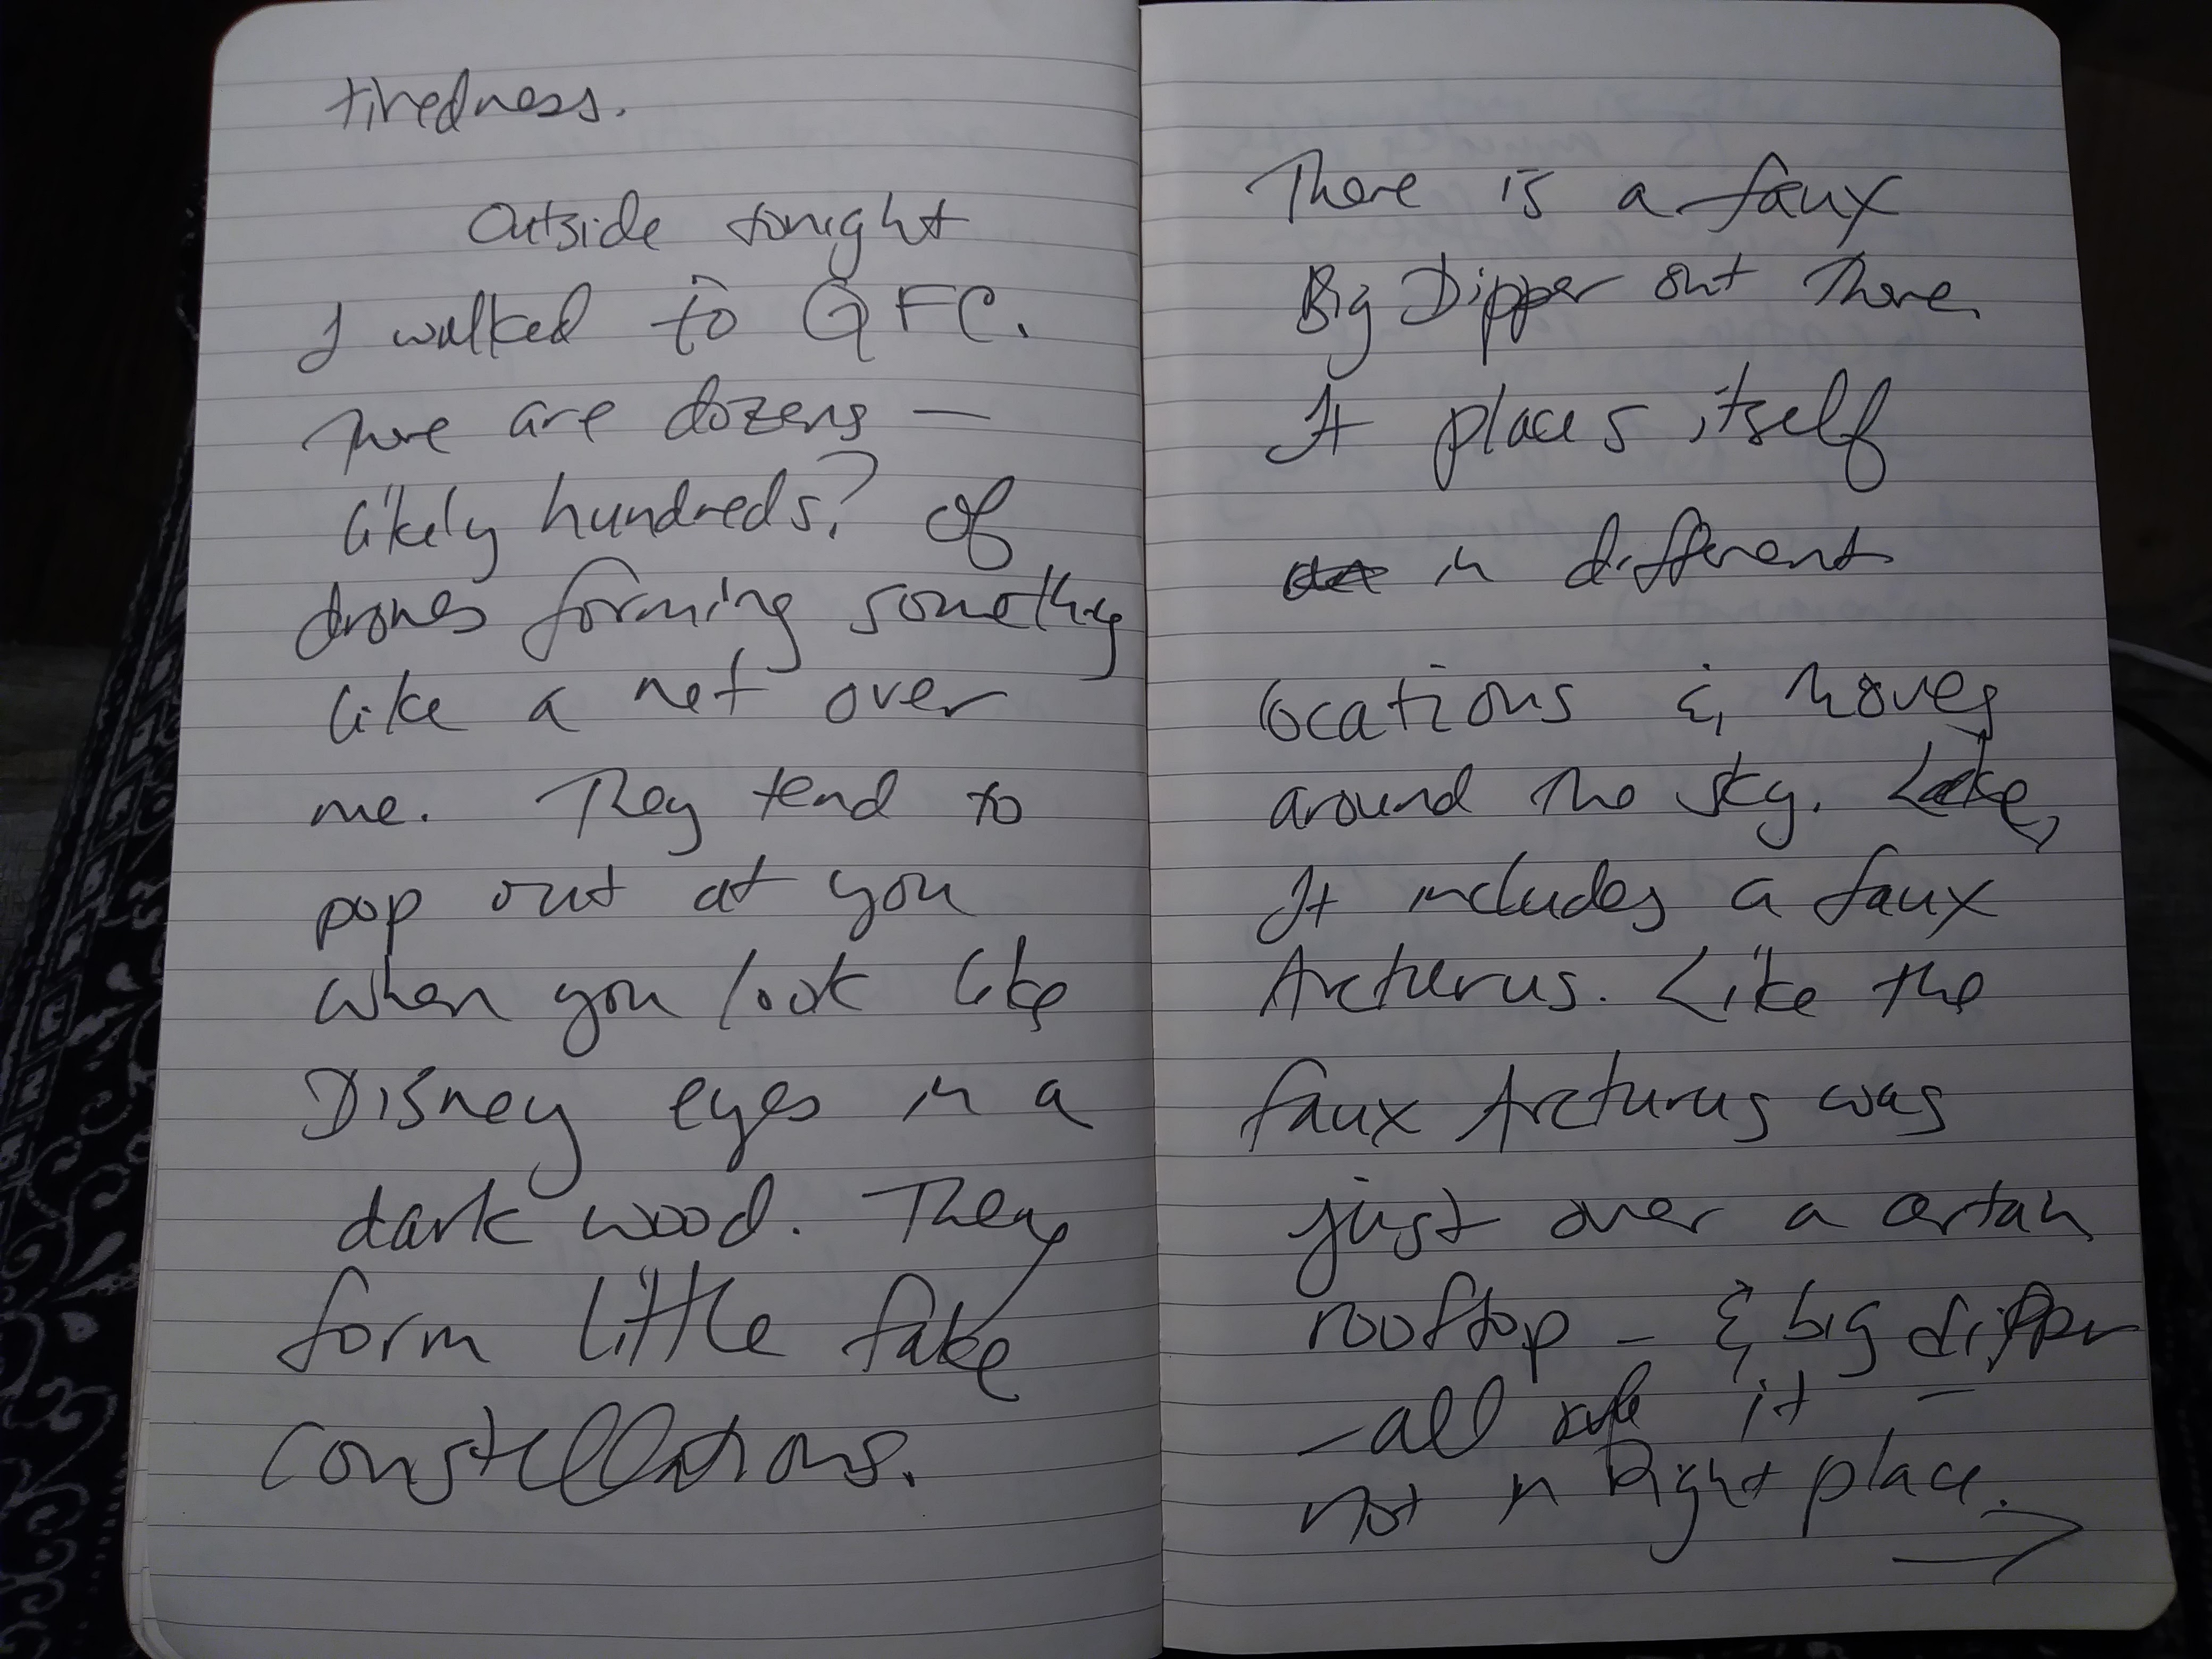 tiredness.
Outside tonight
I walked to QFC.
There are dozens —
likely hundreds? of
drones forming something
like a net over
me. They tend to
pop out at you
when you look like
Disney eyes in a
dark wood. They
form little fake
constellations.
There is a faux
Big Dipper out there.
It places itself
in different
locations & moves
around the sky. Like,
It includes a faux
Arcturus. Like the
faux Arcturus was
just over a certain
rooftop - & big dipper
- all it -
not in Right place.
→